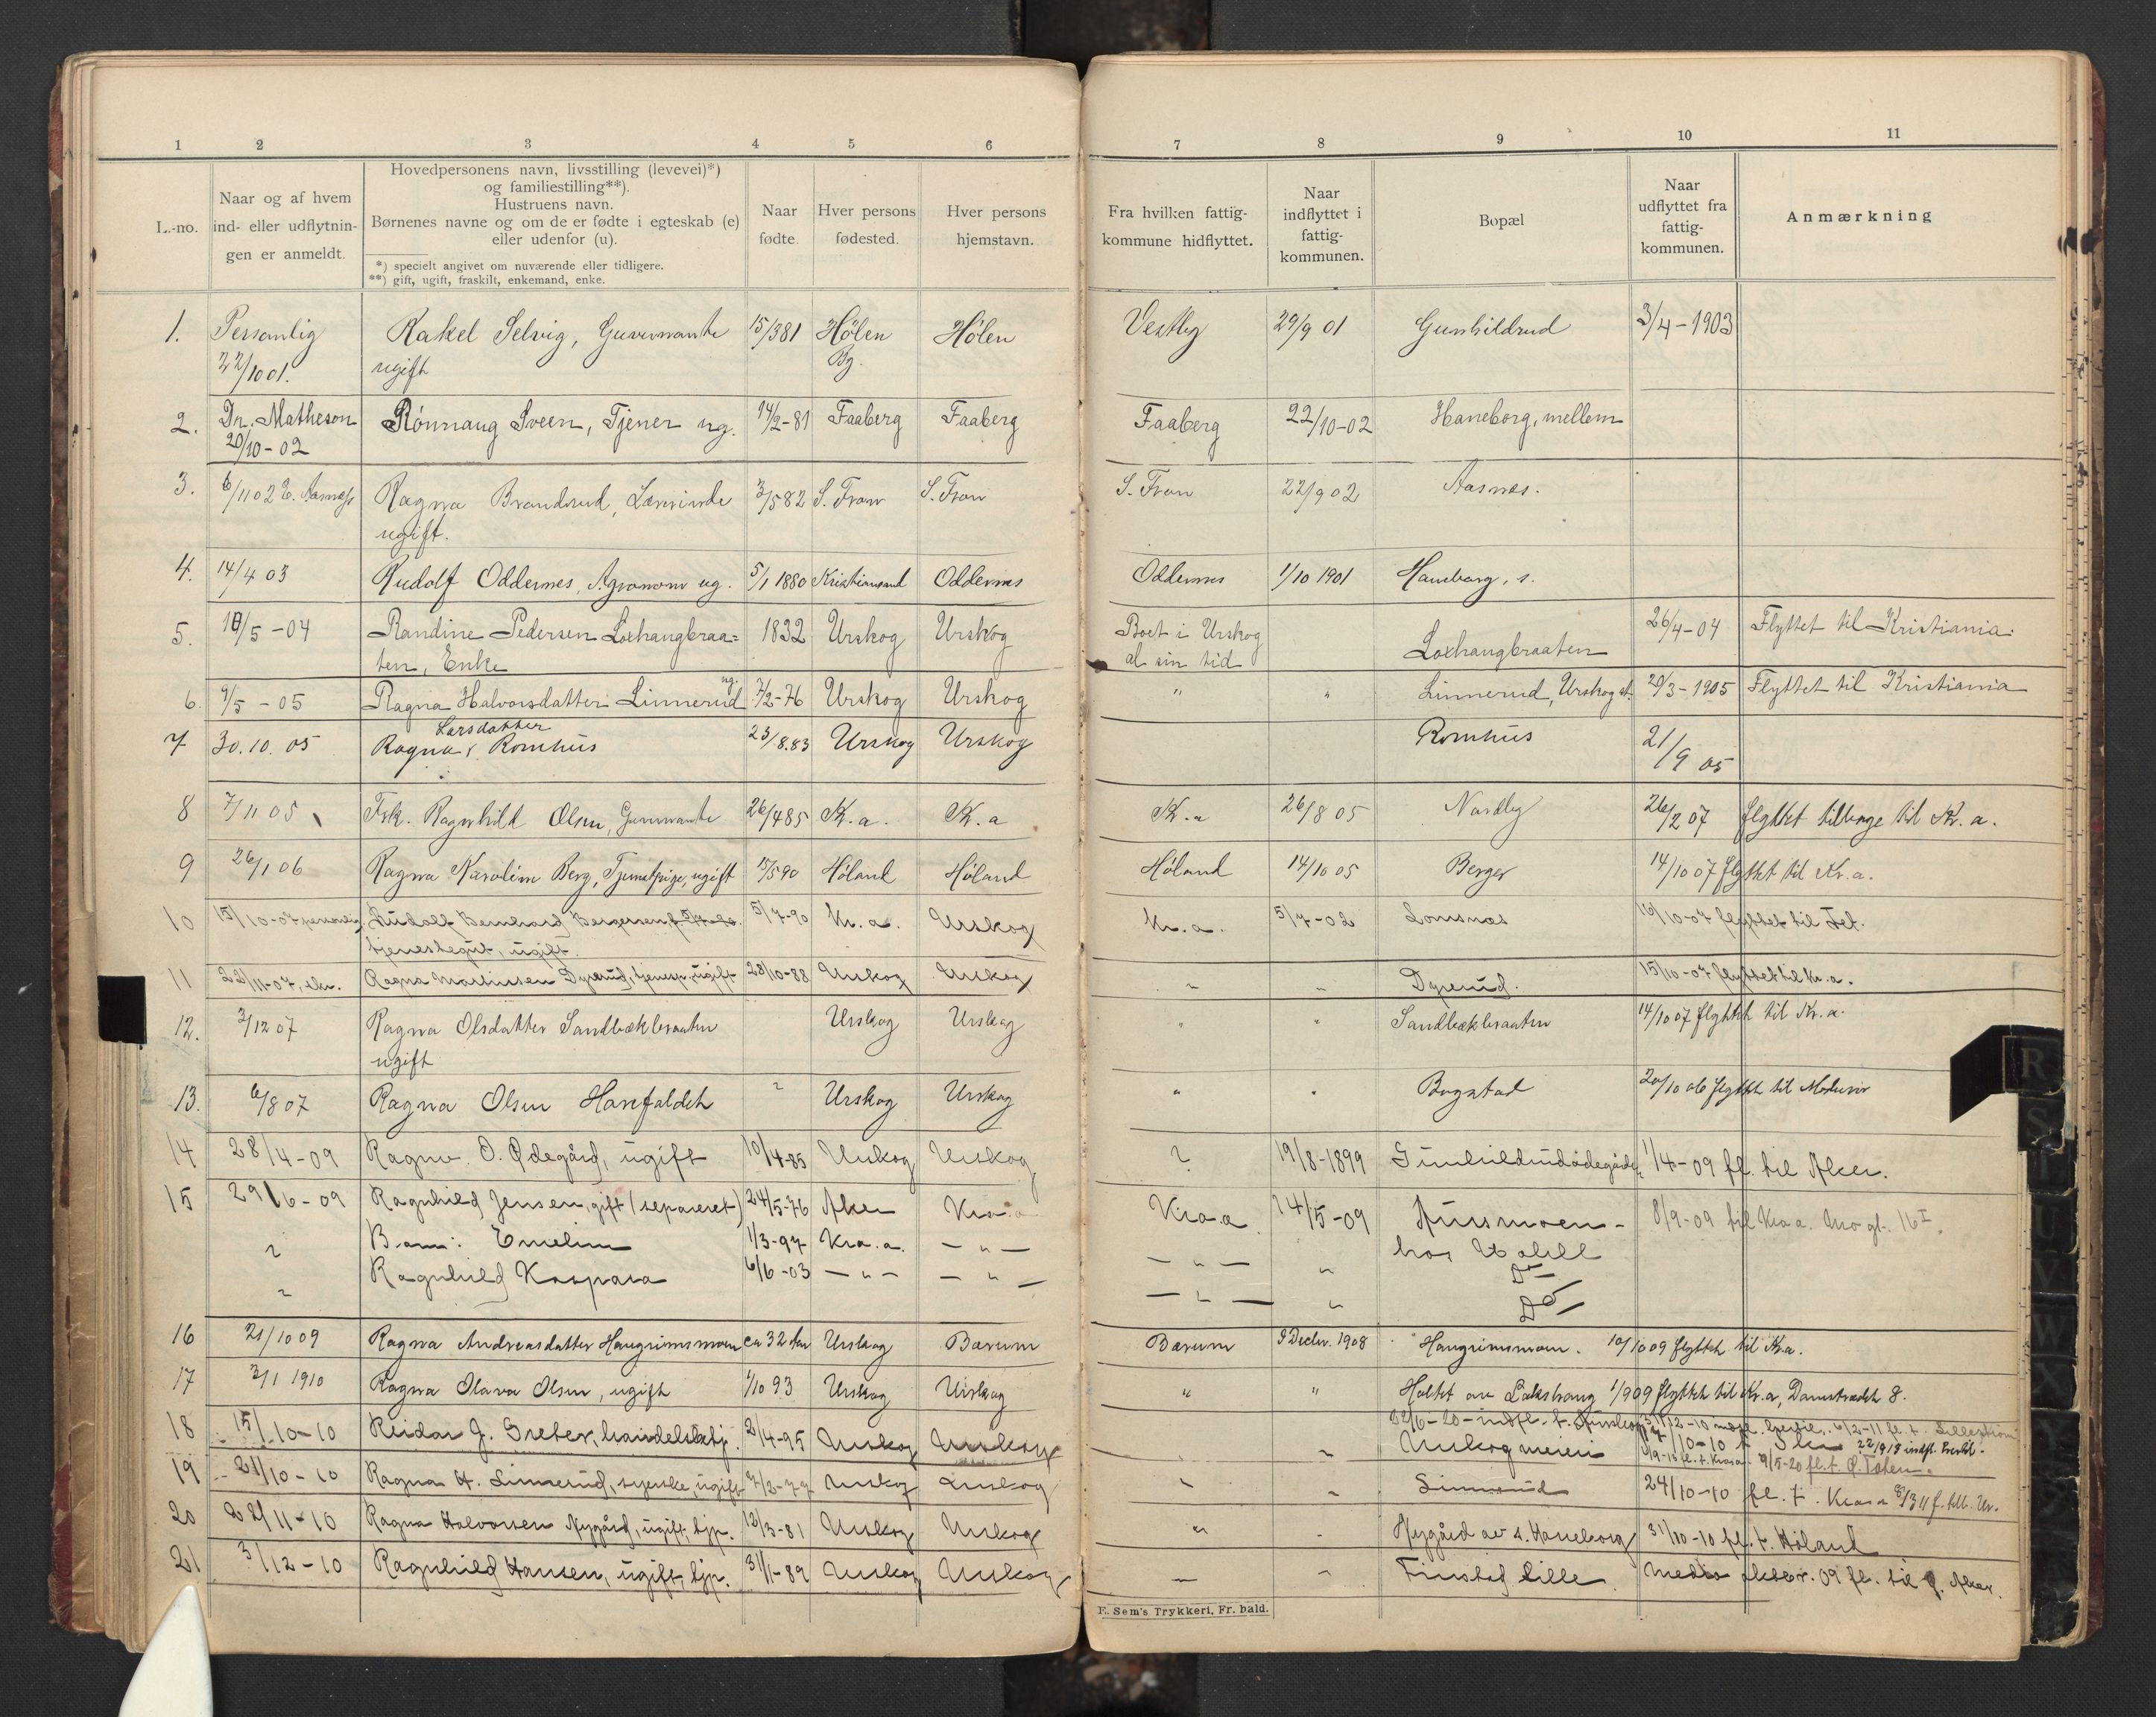 1 2 3 4 5 6 7 8 9 10 11
L.-no.
Naar og af hvem
ind- eller udflytnin-
gen er anmeldt.
Hovedpersonens navn, livsstilling (levevei)*)
og familiestilling**).
Hustruens navn.
Børnenes navne og om de er fødte i egteskab (e)
eller udenfor (u).
*) specielt angivet om nuværende eller tidligere.
**) gift, ugift, fraskilt, enkemand, enke.
Naar
fødte.
Hver persons
fødested.
Hver persons
hjemstavn.
Fra hvilken fattig-
kommune hidflyttet.
Naar
indflyttet i
fattig-
kommunen.
Bopæl
Naar
udflyttet fra
fattig-
kommunen.
Anmærkning
1. Personlig Rakel Selvig, Guvernante 15/3 81 Hølen Hølen Vestby 29/9 01 Gunhildrud 3/4-1903
22/10 01. ugift Bg.
2. Dr. Matheson Rønnaug Sveen, Tjener ug. 14/2-81 Faaberg Faaberg Faaberg 22/10-02 Haneborg, mellem
20/10-02
3. 6/11 02 Ragna Brandrud, Lærerinde 3/5 82 S. Fron S. Fron S. Fron 22/9 02 Aasnes.
ugift.
4. 14/4 03 Rudolf Oddernes, Agronom ug. 5/1 1880 Kristiansand Oddernes Oddernes 1/10 1901 Haneborg, s.
5. 18/5-04 Randine Pedersen Loxhaugbraa= 1832 Urskog Urskog Boet i Urskog Loxhaugbraaten 26/4-04 Flyttet til Kristiania.
ten, Enke al sin tid
6. 9/5-05 Ragna Halvorsdatter Linnerud ug. 7/2-76 Urskog Urskog " " Linnerud, Urskog st. 20/3-1905 Flyttet til Kristiania
Larsdatter
7 30.10.05 Ragna Romhus 23/8.83 Urskog Urskog Romhus 21/9 05
8 7/11 05 Frk. Ragnhild Olsen, Guvernante 26/4 85 Kr.a. Kr.a Kr.a 26/8 05 Nordby 26/2 07 flyttet tilbage til Kr.a.
9 26/1 06 Ragna Karoline Berg, Tjenestpige, ugift 15/5 90 Høland Høland Høland 14/10 05 Berger 14/10 07 flyttet til Kr.a.
10 15/10-07 personlig Rudolf Bernhard Bergersen, f. 5/7-90. 5/7-90 Kr.a. Urskog Kr.a. 5/7-02 Lonsnæs 16/10-07 flyttet til Fet.
tjenestegut, ugift.
11 22/11-07, Ragna Martinsen Dyrerud, tjenesp., ugift 28/10-88 Urskog Urskog " " Dyrerud. 15/10-07 flyttet til Kr.a.
12. 3/12 07 Ragna Olsdatter Sandbækbraaten Urskog Urskog " " Sandbækbraaten 14/10 07 flyttet til Kr.a.
ugift
13. 6/8 07 Ragna Olsen Harefaldet " Urskog Urskog " " Bogstad 20/10 06 flyttet til
14 28/4-09 Ragna O. Ødegård, ugift 10/4-85 Urskog Urskog ? 19/8-1899 Gunhildrudødegården 1/4-09 fl. til Aker.
15 29/6-09 Ragnhild Jensen, gift (separeret) 24/5-76 Aker Kra.a Kra.a 14/5-09 Aursmoen- 8/9-09 til Kra a.
" Barn: Emeline 1/3-97 Kra.a. -"- -"- " hos
" Ragnhild Kaspara 6/6-03 -"- -"- -"- " Do
Do
16 21/10 09 Ragna Andreasdatter Haugrimsmoen ca 32 Aar Urskog Bærum Bærum 9 Decbr. 1908 Haugrimsmoen. 10/10 09 flyttet til Kr.a.
17 3/1 1910 Ragna Olava Olsen, ugift 1/10 93 Urskog Urskog " " Holtet av Lakshaug 1/9 09 flyttet til Kr.a, Damstrædet 8.
18 15/10-10 Reidar J. Greter, handelsbetj. 2/4-95 Urskog Urskog " " Urskog meieri
19 21/10-10 Ragna H. Linnerud, syerske, ugift 7/2-77 Urskog Urskog " " Linnerud 24/10-10 fl. t. Kra a
20 22/11-10 Ragna Halvorsen Nygård, ugift, tjp. 12/3-81 Urskog Urskog " " Nygård av s. Haneborg 31/10-10 fl. t. Høland
21 3/12-10 Ragnhild Hansen, ugift, tjp. 31/1-89 Urskog Urskog " " Finstad lille. medio oktbr. 09 fl. til Ø. Aker.
E. Sem's Trykkeri, Fr. hald.
R
S
U
V